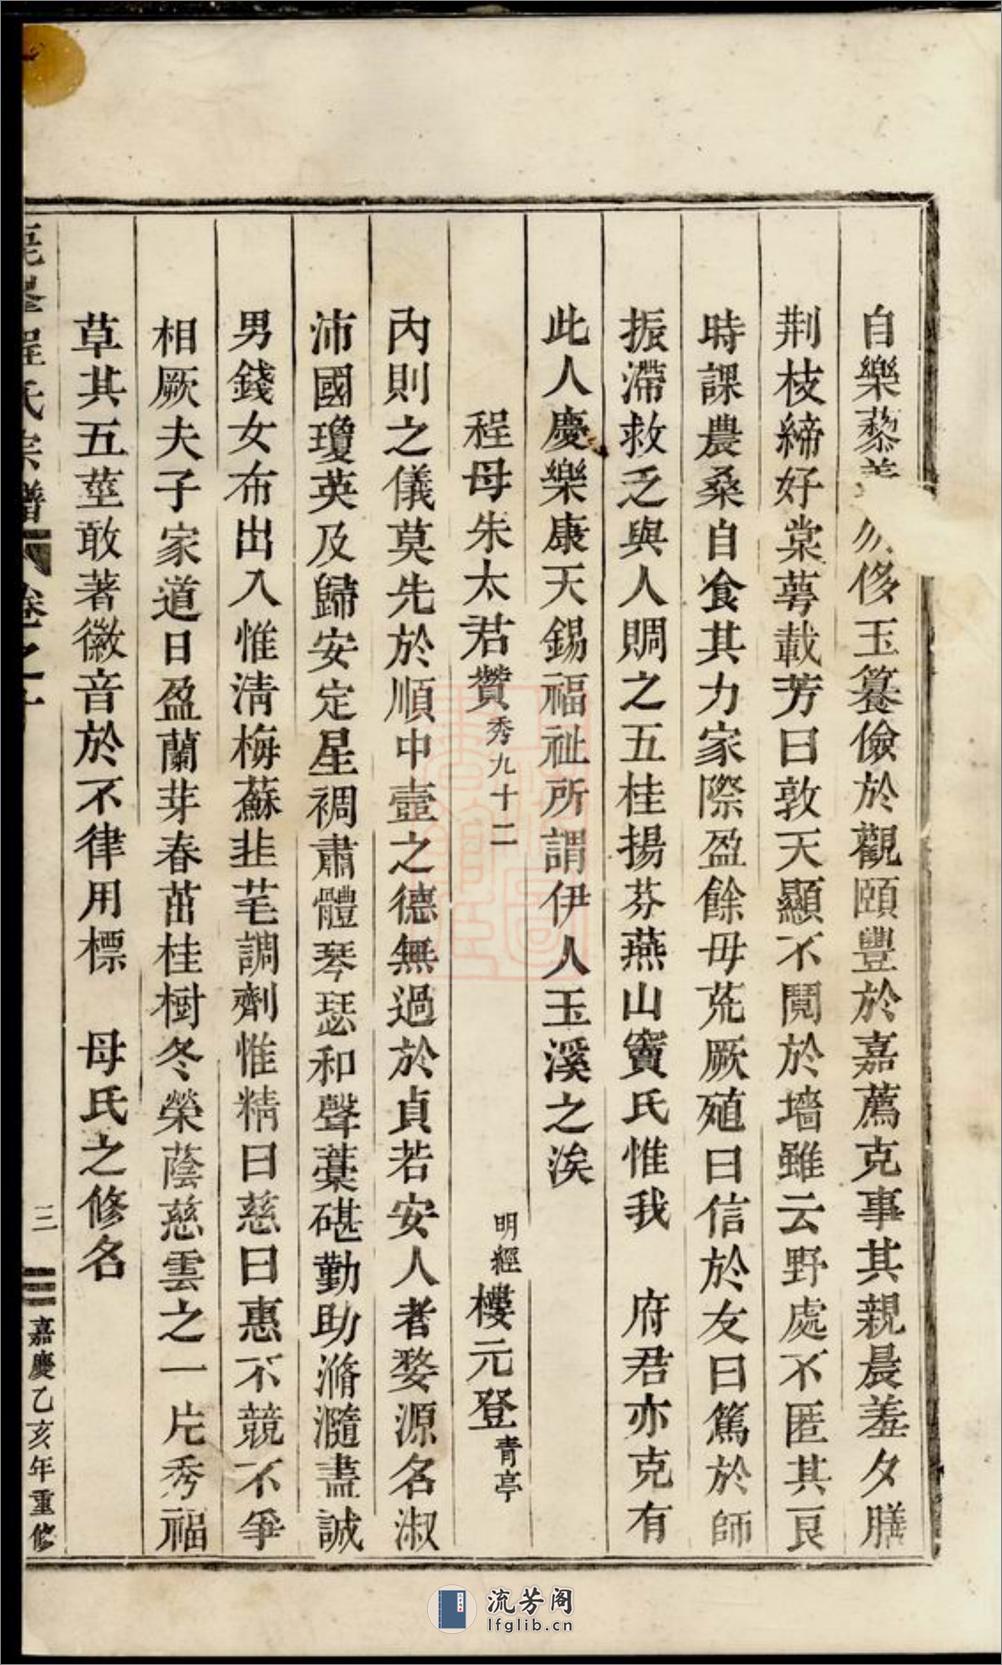 自樂藜羹勿侈玉簋儉於觀頤豐於嘉薦克事其親晨羞夕膳
荆枝締好棠萼載芳曰敦天顯不鬩於墻雖云野處不匿其良
時課農桑自食其力家際盈餘毋荒厥殖曰信於友曰篤於師
振滯救乏與人賙之五桂揚芬燕山竇氏惟我 府君亦克有
此人慶樂康天錫福祉所謂伊人玉溪之涘
程母朱太君贊秀九十二 明經樓元登青亭
內則之儀莫先於順中壼之德無過於貞若安人者婺源名淑
沛國瓊英及歸安定星裯肅體琴瑟和聲藁碪勤助滫瀡盡誠
男錢女布出入惟清梅蘇韭芼調劑惟精曰慈曰惠不競不爭
相厥夫子家道日盈蘭芽春茁桂樹冬榮蔭慈雲之一片秀福
草其五莖敢著徽音於不律用標 母氏之修名
程氏宗譜 卷之十 三 嘉慶乙亥年重修
流芳阁
lfglib.cn